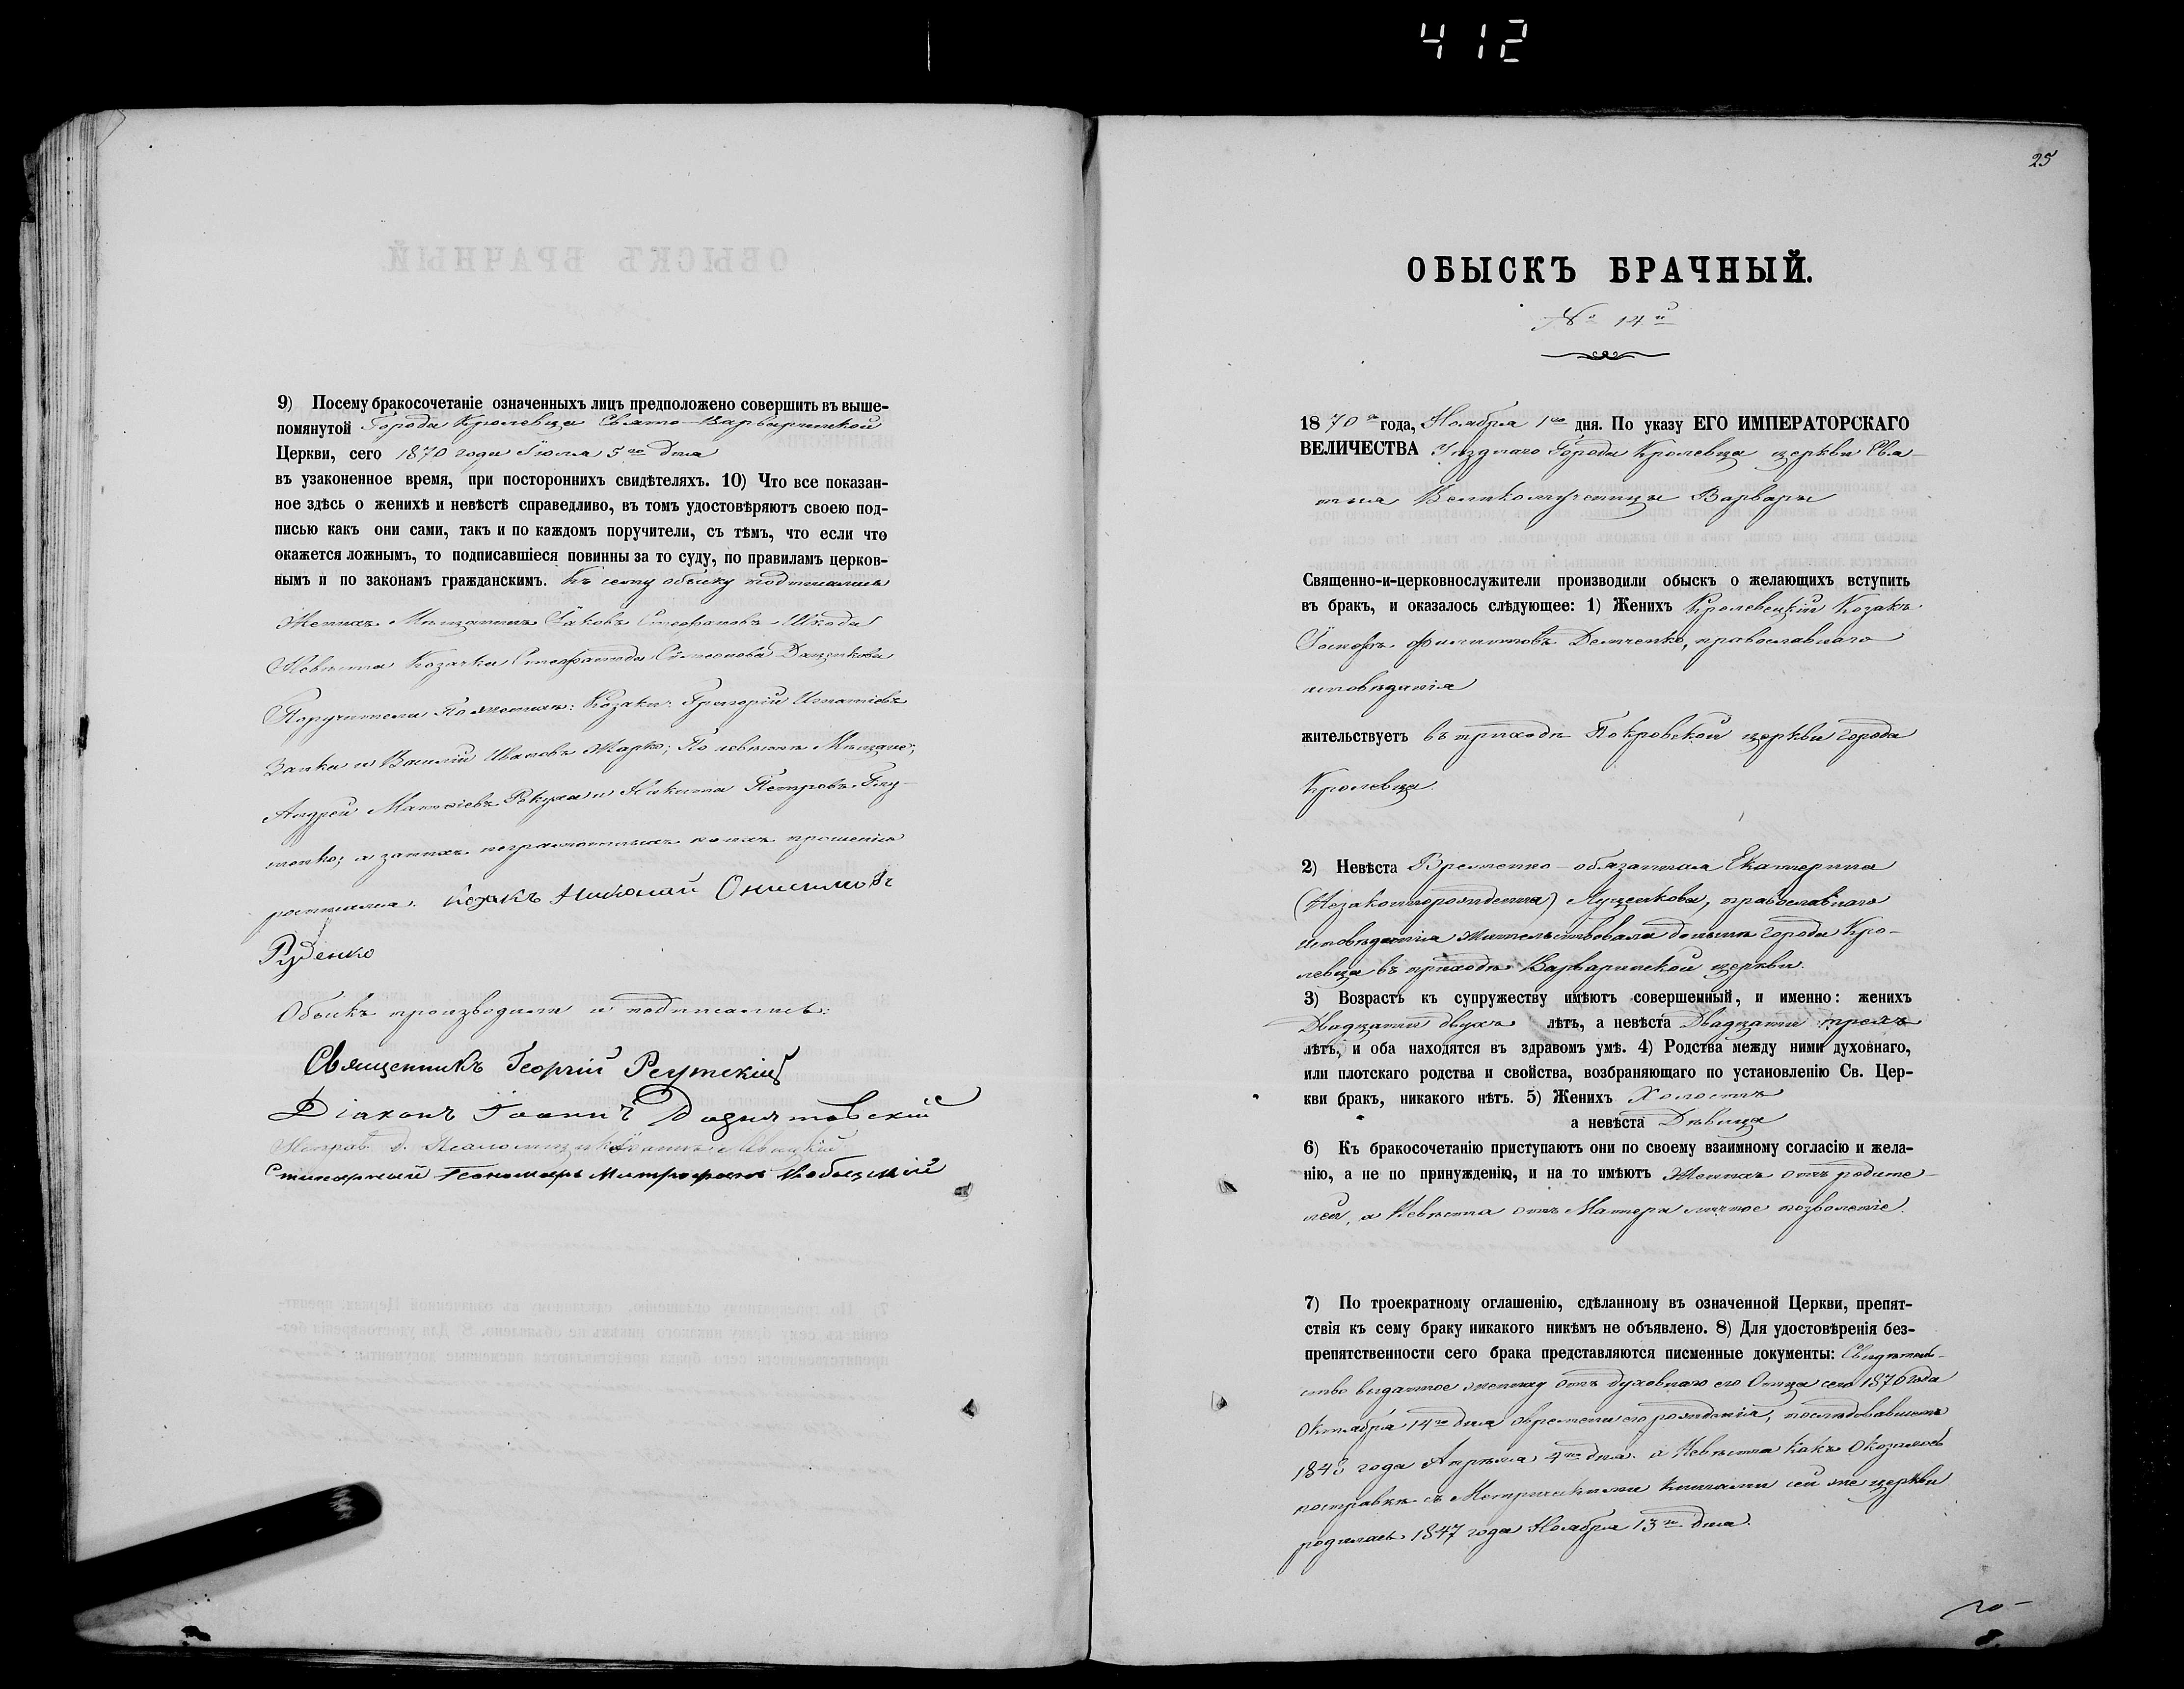 412
25
9) Посему бракосочетаніе означенныхъ лицъ предположено совершить въ выше-
помянутой Города Кролевца Свято-Варваринской
Церкви, сего 1870 года Іюля 5го дня
въ узаконенное время, при постороннихъ свидѣтеляхъ. 10) Что все показан-
ное здѣсь о женихѣ и невѣстѣ справедливо, въ томъ удостовѣряютъ своею под-
писью какъ они сами, такъ и по каждомъ поручители, съ тѣмъ, что если что
окажется ложнымъ, то подписавшіеся повинны за то суду, по правиламъ церков-
нымъ и по законамъ гражданскимъ. Къ сему обыску подписались
Женихъ Мѣщанинъ Іаковъ Стефановъ Шкода
Невѣста Козачка Стефанида Сѵмеонова Даценкова
Поручители По женихѣ: Козаки: Григорій Игнатіевъ
Заика и Василій Ивановъ Жарко; По невѣстѣ Мѣщане;
Андрей Матѳіевъ Рокуха и Никита Петровъ
а занихъ неграмотныхъ поихъ прошенію
росписался. Козакъ Николай Онисимовъ
Руденко
Обыскъ производили и подписались:
Священникъ Георгій Реутскій
Діаконъ Іоаннъ
Исправ. д. Псаломщика Іоаннъ
Пономарь Митрофанъ
ОБЫСКЪ БРАЧНЫЙ.
№ 14й
1870го года, Ноября 1го дня. По указу ЕГО ИМПЕРАТОРСКАГО
ВЕЛИЧЕСТВА Уѣзднаго Города Кролевца церкви Свя-
тыя Великомученицы Варвары
Священно-и-церковнослужители производили обыскъ о желающихъ вступить
въ бракъ, и оказалось слѣдующее: 1) Женихъ Кролевецкій Козакъ
Іосифъ Филиповъ Демченко, православнаго
исповѣданія
жительствуетъ въ приходѣ Покровской церкви города
Кролевца.
2) Невѣста Временно-обязанная Екатерина
(Незаконнорожденна) Луценкова, православнаго
исповѣданія жительствовала донынѣ города Кро-
левца въ приходѣ Варваринской церкви.
3) Возрастъ къ супружеству имѣютъ совершенный, и именно: женихъ
Двадцати двухъ лѣтъ, а невѣста Двадцати трехъ
лѣтъ, и оба находятся въ здравомъ умѣ. 4) Родства между ними духовнаго,
или плотскаго родства и свойства, возбраняющаго по установленію Св. Цер-
кви бракъ, никакого нѣтъ. 5) Женихъ Холостъ
а невѣста Дѣвица
6) Къ бракосочетанію приступаютъ они по своему взаимному согласію и жела-
нію, а не по принужденію, и на то имѣютъ Женихъ отъ родите-
лей, а Невѣста отъ Матери личное позволеніе.
7) По троекратному оглашенію, сдѣланному въ означенной Церкви, препят-
ствія къ сему браку никакого никѣмъ не объявлено. 8) Для удостовѣренія без-
препятственности сего брака представляются писменные документы: Свидѣтель-
ство выданное жениху отъ духовнаго его Отца сего 1870 года
Октября 14го дня овремени его рожденія, послѣдовавшемъ
1848 года Апрѣля 4го дня. а Невѣста какъ Оказалось
посправкѣ съ Метрическими книгами сей же церкви
родилась 1847 года Ноября 13го дня.